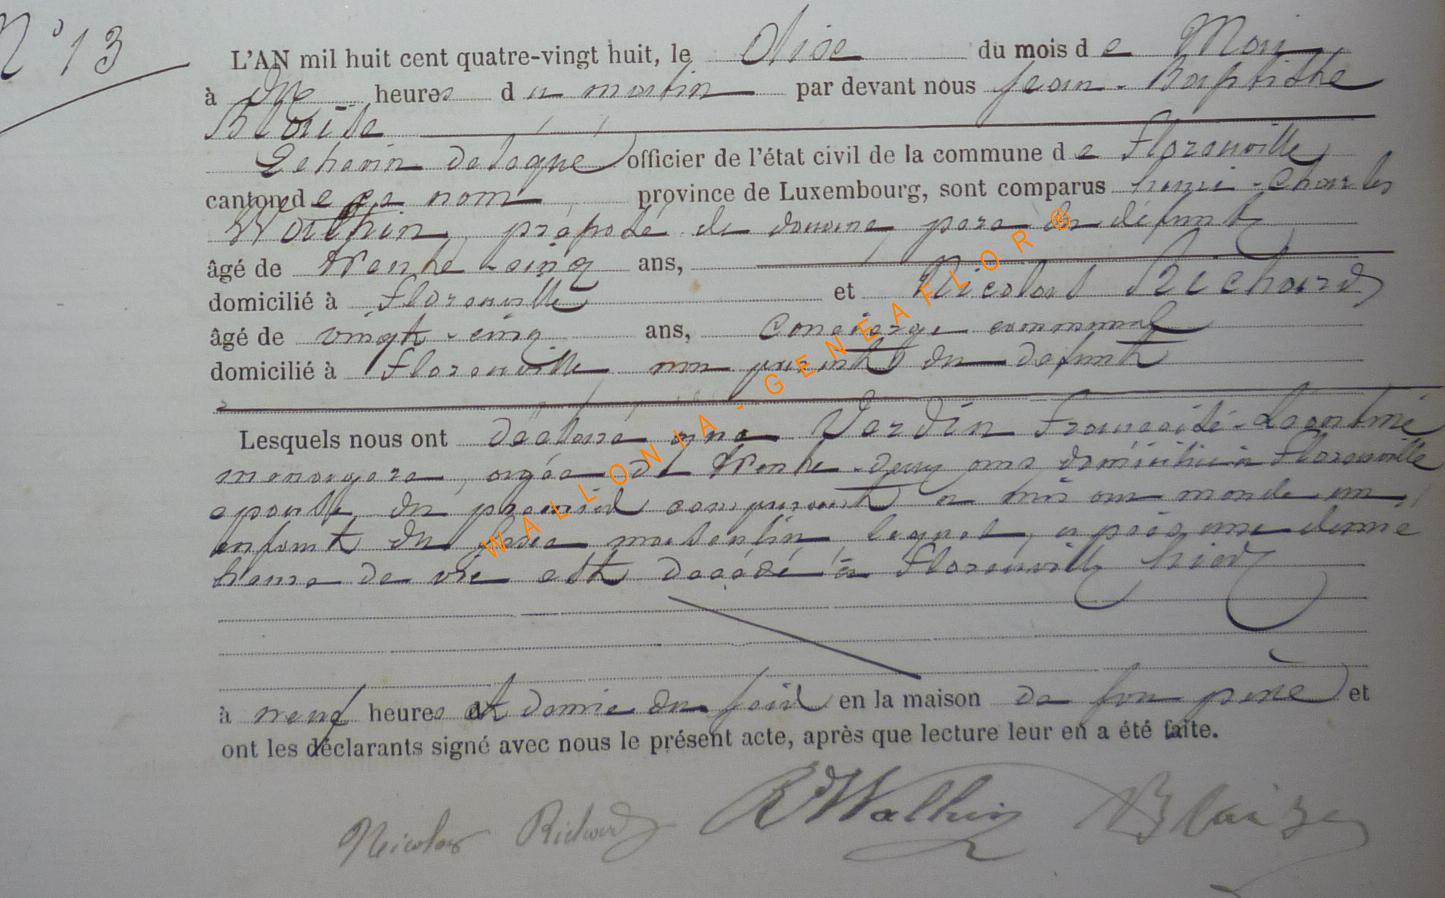 N° 13
L'AN mil huit cent quatre-vingt huit, le onze du mois de Mai
à dix heures du matin par devant nous Jean-Baptiste
Blaise
Echevin délégué officier de l'état civil de la commune de Florenville
canton de ce nom province de Luxembourg, sont comparus henri-Charles
Wathin, préposé de douane, père du défunt,
âgé de trente-cinq ans,
domicilié à Florenville et Nicolas Richard,
âgé de vingt-cinq ans, Concierge communal
domicilié à Florenville non parent du défunt
Lesquels nous ont déclaré que Verdin Françoise-Léontine
ménagère, agée de trente-deux ans domiciliée à Florenville
épouse du premier comparant a mis au monde un
enfant du sexe masculin lequel, après une demie
heure de vie est décédé à Florenville hier
à neuf heures et demie du soir en la maison de son père et
ont les déclarants signé avec nous le présent acte, après que lecture leur en a été faite.
Nicolas Richard Wathin Blaise
WALLONIA-GENEAFLOR®